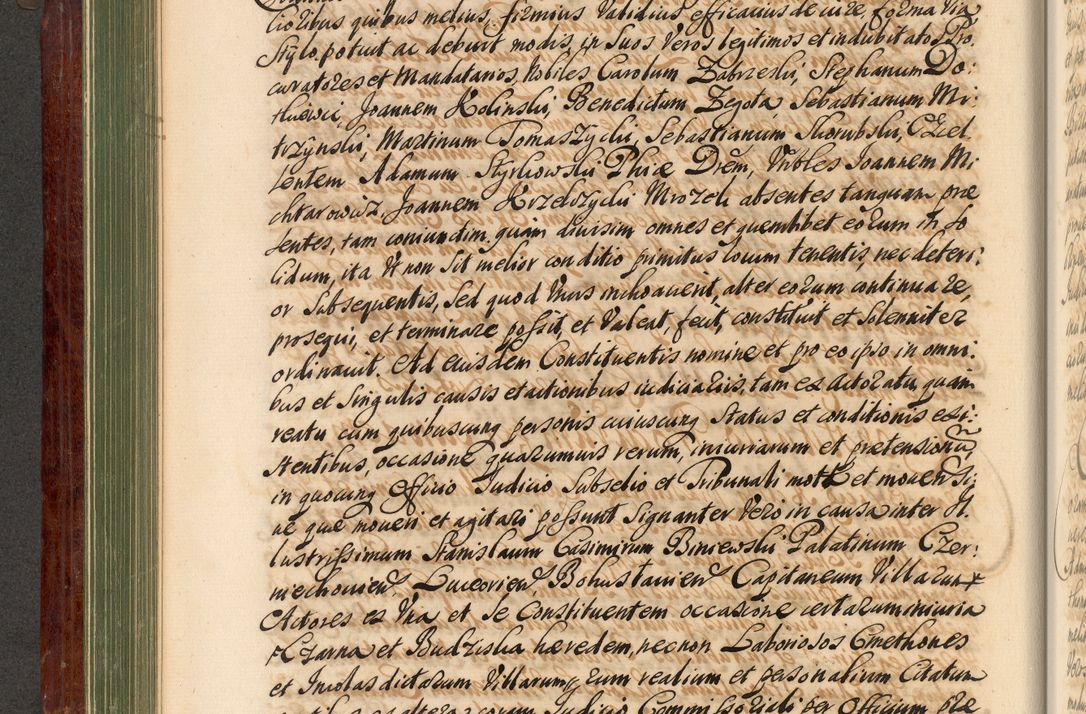 tioribus quibus melius, firmius validius efficacius de iure, forma via
Stylo potuit ac debuit modis, in suos veros legitimos et indubitatos Pro
curatores et Mandatarios, Nobiles Carolum Zabrzeski, Stephanum Do:
Joannem Kolinski, Benedictum Zegota, Sebastianum Mi:
trzynski, Martinum Tomaszycki, Sebastianum Skorubski, Czel
lentem Adamum Styrkowski Phiæ Drem, Vrbles Joannem Mi:
chtarowicz, Joannem Krzeldzycki Mrozek absentes tanquam præ
sentes, tam coniunctim quam divisim omnes et quemlibet eorum in so
lidum, ita vt non sit melior conditio primitus locum tenentis, nec deteri:
or subsequentis, sed quod vnus inchoaverit, alter eorum continuare,
prosequi, et terminare possit, et valeat, fecit, constituit et solenniter
ordinavit. Ad eiusdem Constituentis nomine et pro eo ipso in omni:
bus et singulis causis et actionibus iudiciariis, tam ex actoratu, quam
reatu cum quibuscunq personis cuiuscunq status et conditionis exi:
stentibus, occasione quarumvis rerum, iniuriarum et prætensionu,
in quocunq Officio Judicio Subselio et Tribunali mott et movensi:
ac quæ moveri et agitari possunt signanter vero in causa inter Il
lustrissimum Stanislaum Casimirum Biniewski Palatinum Czer:
niechovien, Luceorien, Bohustavien Capitaneum Villarum
Actores ex vna et se Constituentem occasione certarum iniuria
Czarna et Budziska hæredem, necnon Laboriosos Cmethones
et Incolas dictarum Villarum, rerum realium et personalium Citatum
Judicio Commissoriali per Officium præ